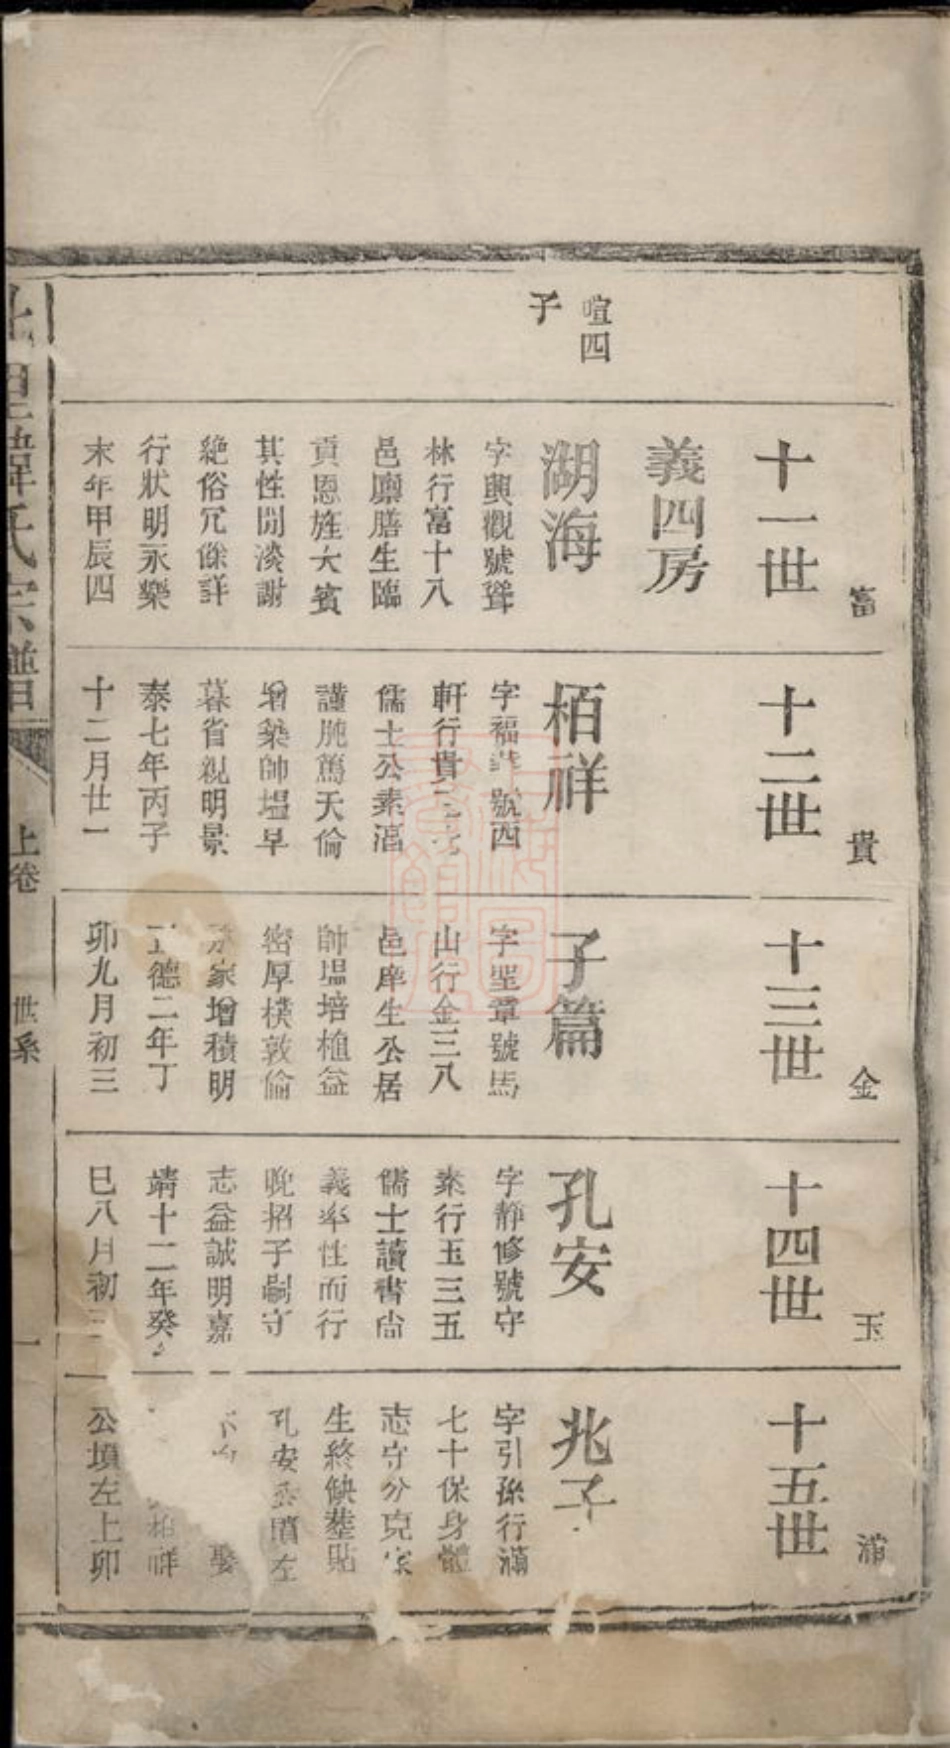 富
十一世
義四房
喧四
子
湖海
字興觀號聳
林行富十八
邑廩膳生臨
貢恩旌大賓
其性閒淡謝
絶俗冗餘詳
行狀明永樂
末年甲辰四
貴
十二世
栢祥
字福 號西
軒行貴
儒士公素溫
謹肫篤天倫
增築帥塭早
暮省親明景
泰七年丙子
十二月廿一
金
十三世
子篇
字聖章號馬
山行金三八
邑庠生公居
帥塭培植益
密厚樸敦倫
家增積明
正德二年丁
卯九月初三
玉
十四世
孔安
字靜修號守
素行玉三五
儒士讀書尙
義率性而行
晚招子嗣守
志益誠明嘉
靖十二年癸
巳八月初三
滿
十五世
兆子
字引孫行滿
七十保身體
志守分克家
生終缺塟貼
孔安公墳左
娶
栢祥
公墳左上卯
氏宗譜
上卷
世系
一